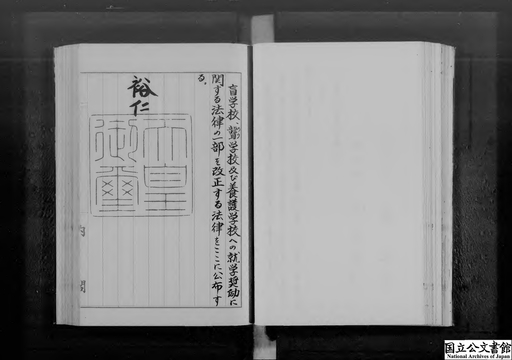 盲学校、聾学校及び養護学校への就学奨励に
関する法律の一部を改正する法律をここに公布す
る。
裕仁
天皇
御璽
内閣
国立公文書館
National Archives of Japan